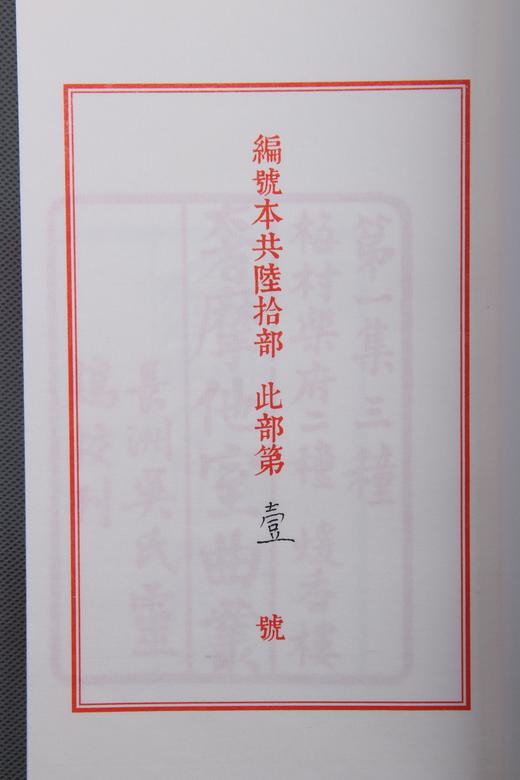 編號本共陸拾部 此部第壹號
第一集三種
梅村樂府二種 煖香樓
奢摩他室曲叢
長洲吳氏靈
校刊